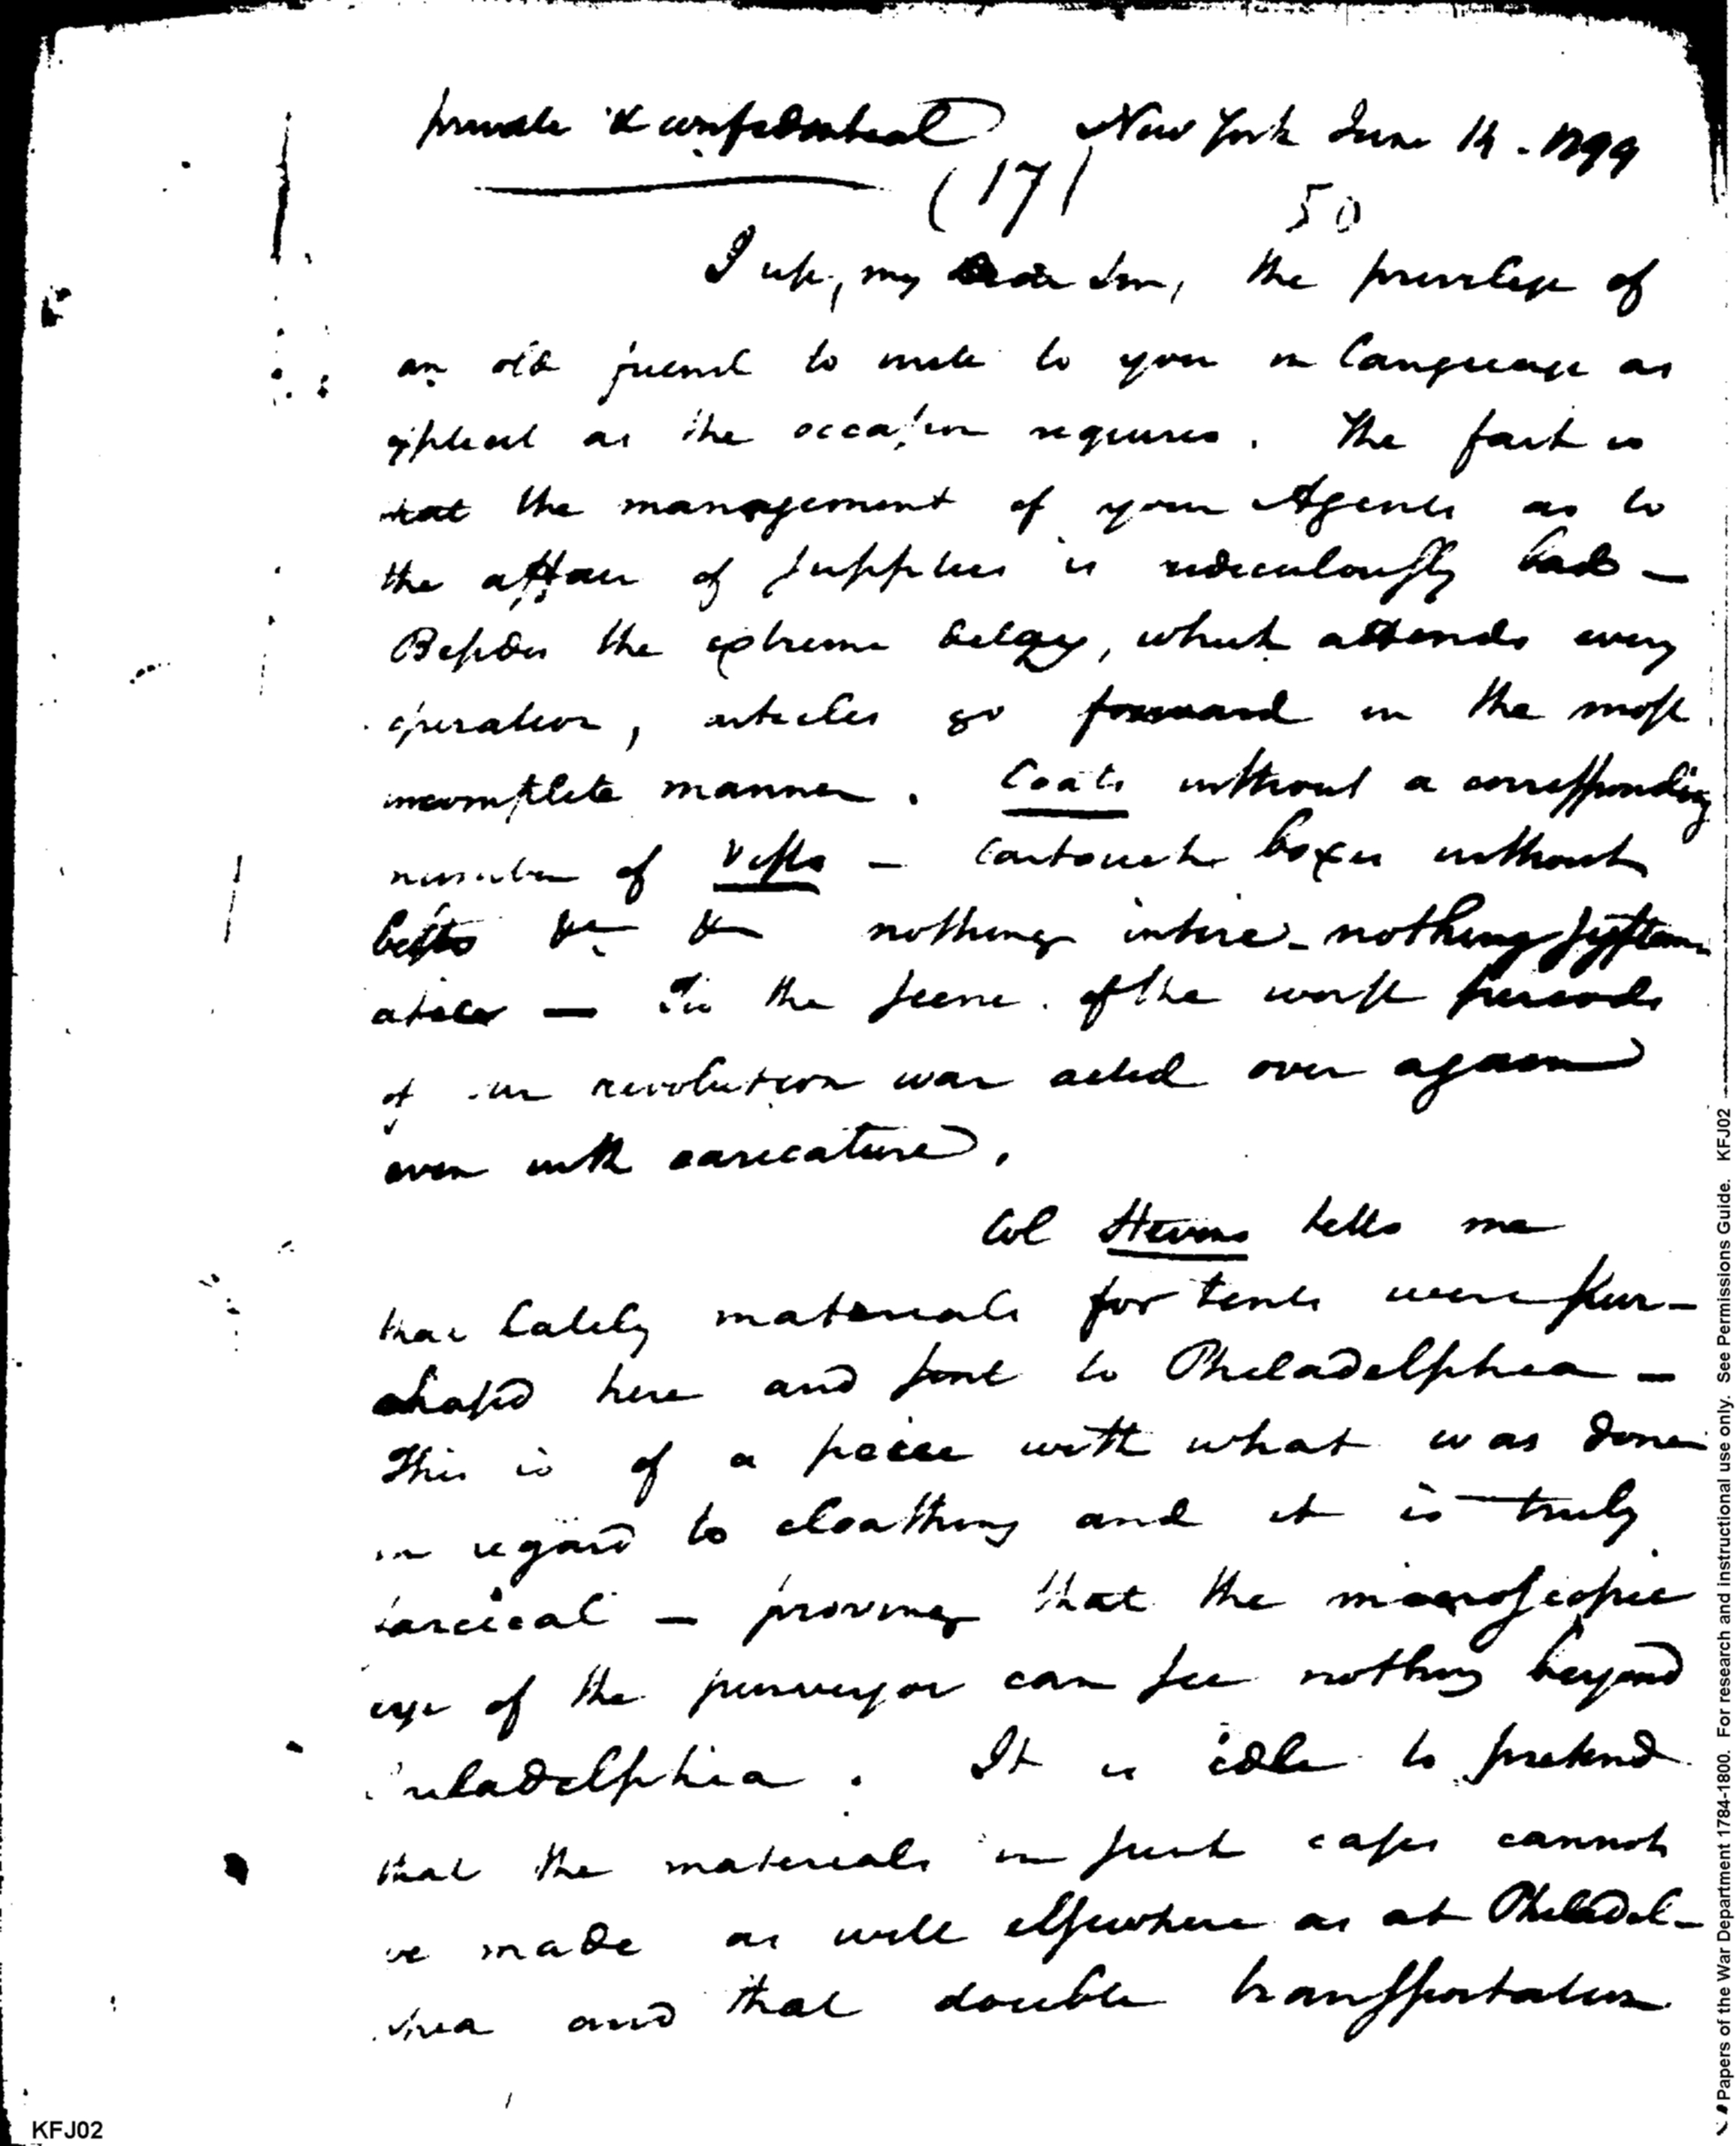 private & confidential New York June 14. 1799
(17)
50
I use, my Dear Sir, the privilege of
an old friend to write to you in language as
explicit as the occasion requires. The fact is
that the management of your Agents as to
the affair of supplies is ridiculously bad —
Besides the extreme delay, which attends every
operation, articles go forward in the most
incomplete manner. Coats without a corresponding
number of Vests — Cartouch boxes without
belts &c &c nothing intire - nothing system
atical — Tis the scene of the worst periods
of our revolution war acted over again
even with caricature.
Col Stevens tells me
that lately materials for tents were pur-
chased here and sent to Philadelphia —
This is of a piece with what was done
in regard to cloathing and it is truly
farcical — proving that the microscopic
eye of the purveyor can see nothing beyond
Philadelphia. It is idle to pretend
that the materials in such cases cannot
be made as well elsewhere as at Philadel-
phia and that double transportation
KFJ02
Papers of the War Department 1784-1800. For research and instructional use only. See Permissions Guide. KFJ02